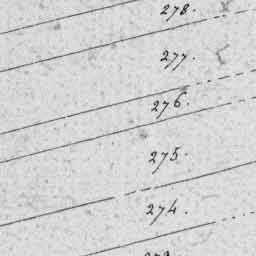 278.
277.
276.
275.
274.